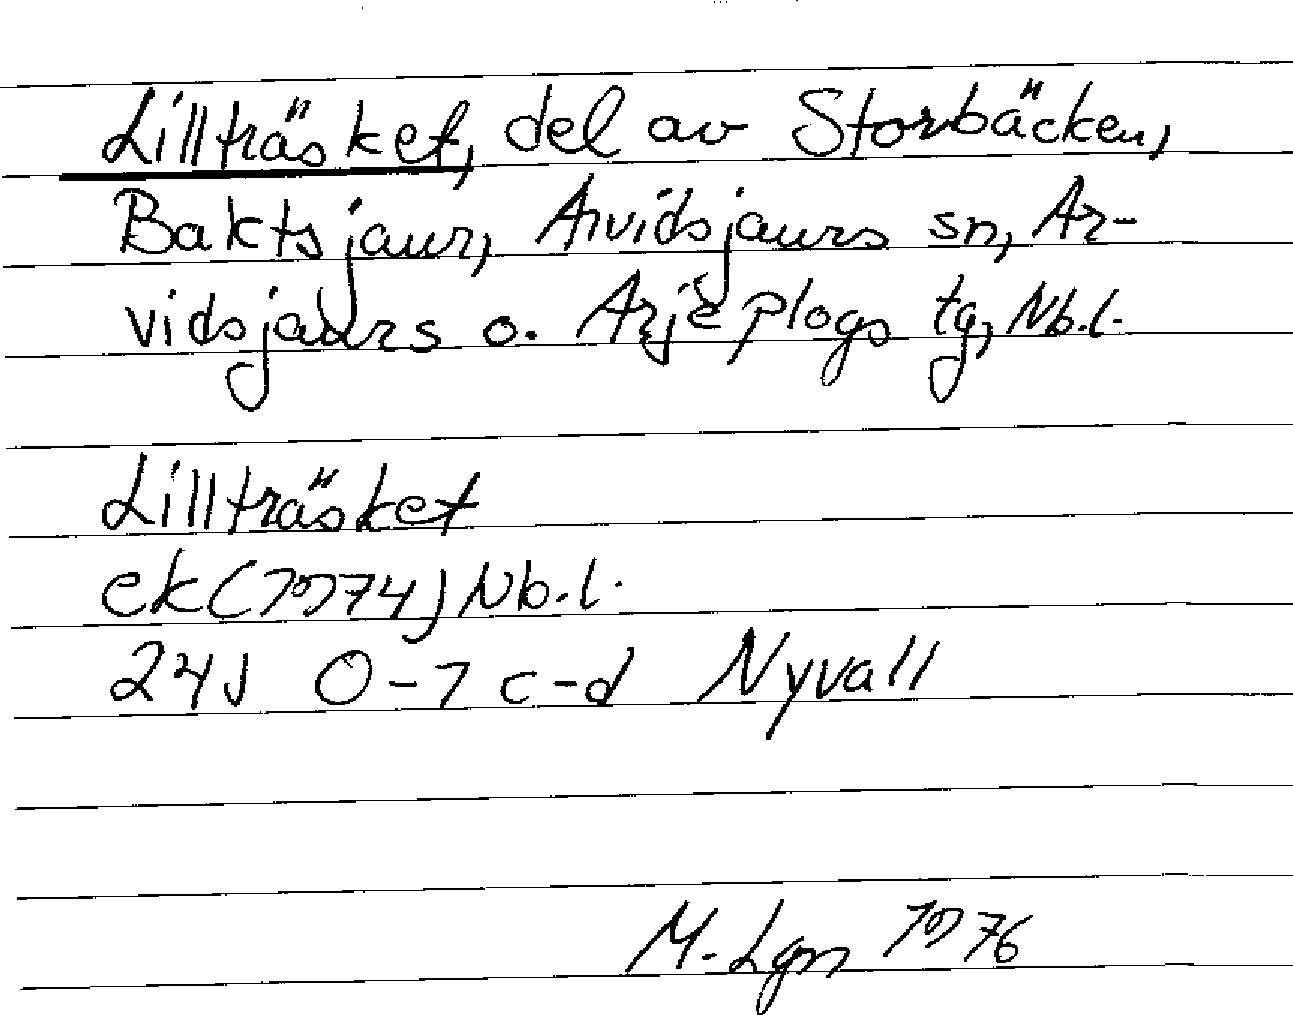 Lillträsket, del av Storbäcken,
Baktsjaur, Arvidsjaurs sn, Ar-
vidsjaurs o. Arjeplogs tg, Nb.l.
Lillträsket
ek (1974) Nb.l.
24J 0-1 c-d Nyvall
M. Lgn 1976